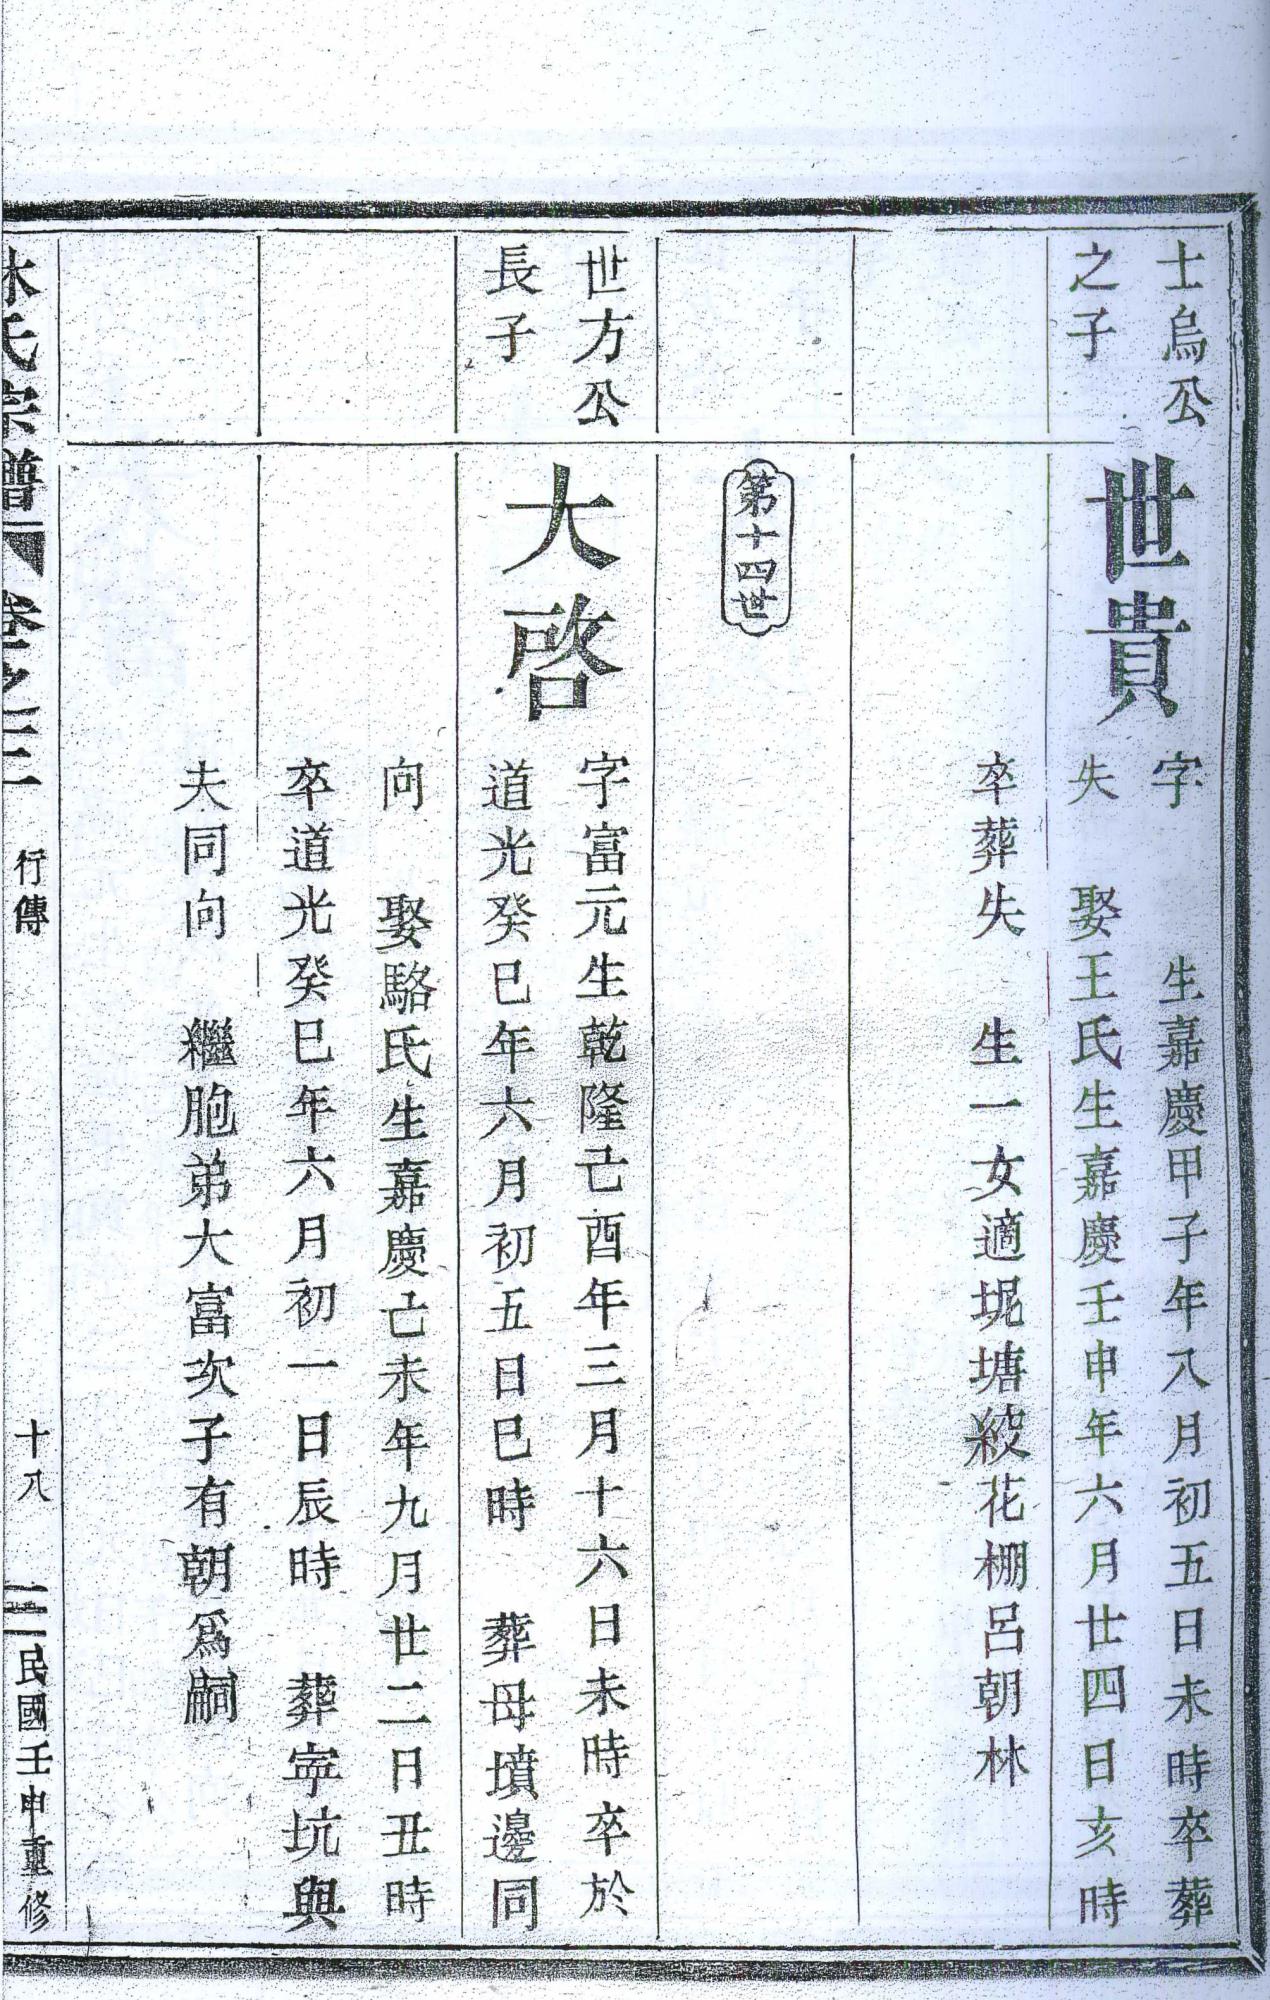 士烏公
之子
世貴
字 生嘉慶甲子年八月初五日未時卒葬
失 娶王氏生嘉慶壬申年六月廿四日亥時
卒葬失 生一女適坭塘綻花棚呂朝林
第十四世
世方公
長子
大啓
字富元生乾隆己酉年三月十六日未時卒於
道光癸巳年六月初五日巳時 葬母墳邊同
向 娶駱氏生嘉慶己未年九月廿二日丑時
卒道光癸巳年六月初一日辰時 葬寕坑與
夫同向 繼胞弟大富次子有朝爲嗣
林氏宗譜 卷之三 行傳 十八 民國壬申重修